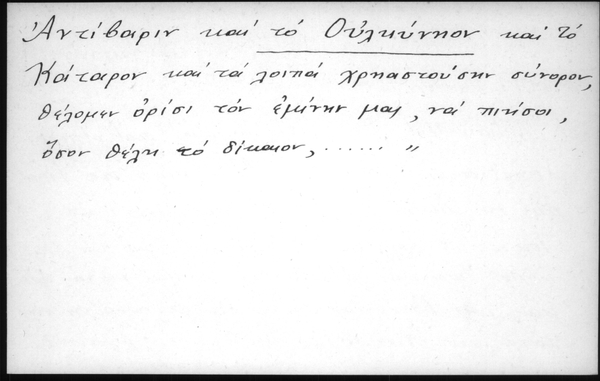 Ἀντίβαριν καί τό Οὐλκύνηον καί τό
Κάταρον καί τά λοιπά χρηαστούσην σύνορον,
θέλομεν ὁρίσι τόν ἐμίνην μας, νά πιήσοι,
ὅσον θέλη τό δίκαιον, ...... "